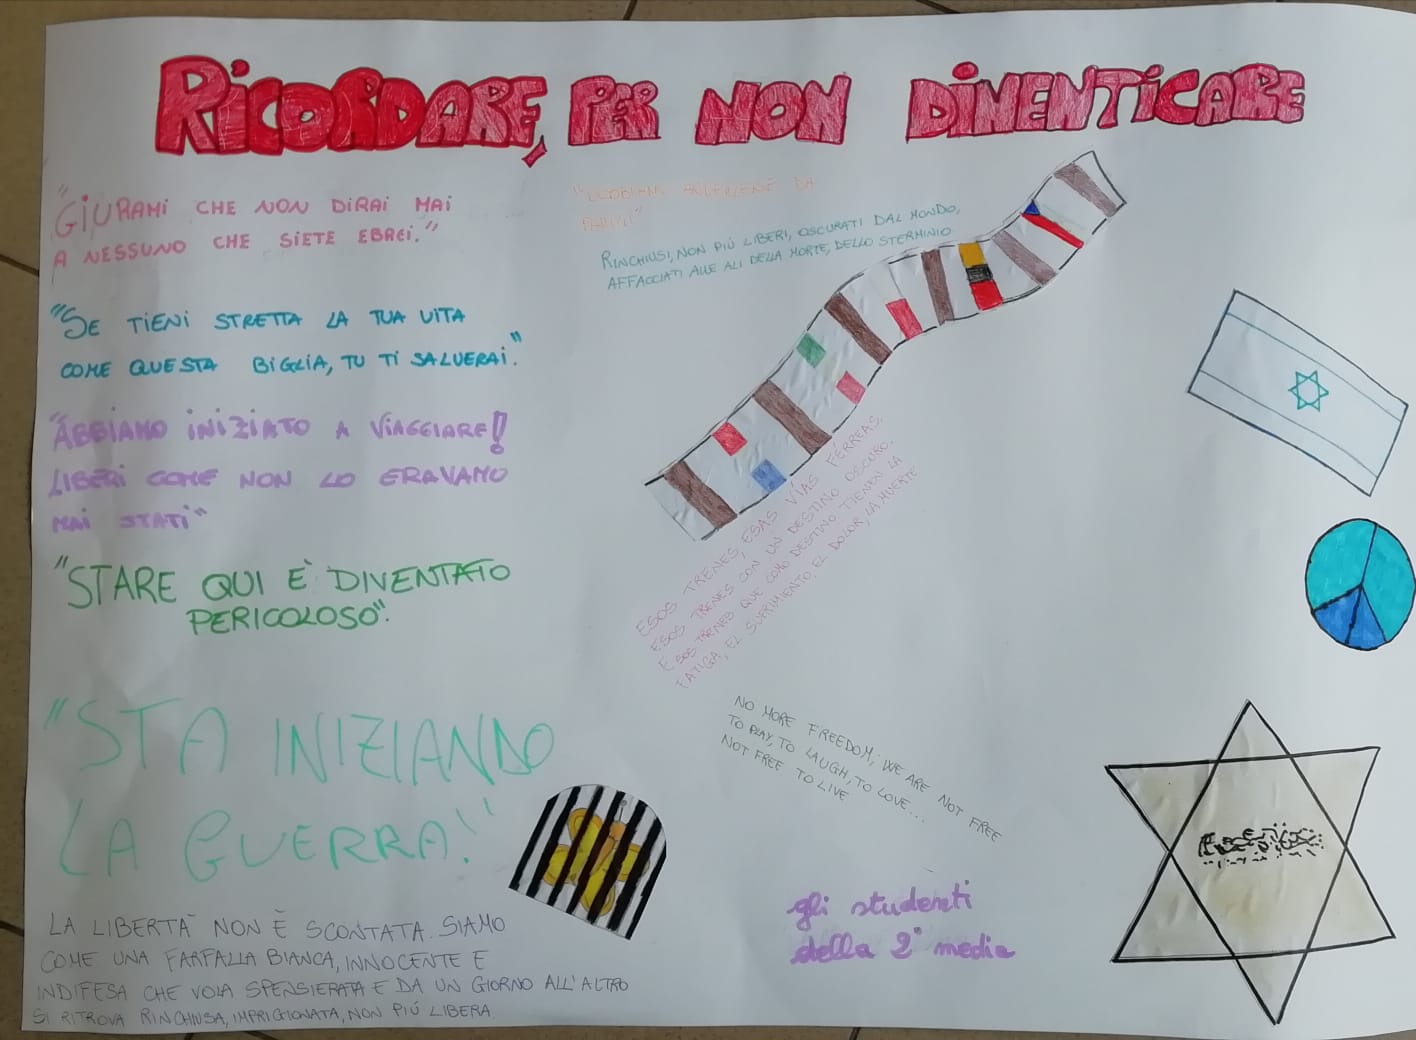 RICORDARE, PER NON DIMENTICARE
"GIURAMI CHE NON DIRAI MAI
A NESSUNO CHE SIETE EBREI."
"SE TIENI STRETTA LA TUA VITA
COME QUESTA BIGLIA, TU TI SALVERAI."
"ABBIAMO INIZIATO A VIAGGIARE!
LIBERI COME NON LO ERAVAMO
MAI STATI"
"STARE QUI È DIVENTATO
PERICOLOSO".
"STA INIZIANDO
LA GUERRA!"
LA LIBERTÀ NON È SCONTATA. SIAMO
COME UNA FARFALLA BIANCA, INNOCENTE E
INDIFESA CHE VOLA SPENSIERATA E DA UN GIORNO ALL'ALTRO
SI RITROVA RINCHIUSA, IMPRIGIONATA, NON PIÚ LIBERA
"DOBBIAMO ANDARCENE DA
RINCHIUSI, NON PIÙ LIBERI, OSCURATI DAL MONDO,
AFFACCIATI ALLE ALI DELLA MORTE, DELLO STERMINIO
ESOS TRENES, ESAS VÍAS FÉRREAS,
ESOS TRENES CON UN DESTINO OSCURO.
ESOS TRENES QUE COMO DESTINO TIENEN LA
FATIGA, EL SUFRIMIENTO, EL DOLOR, LA MUERTE
NO MORE FREEDOM; WE ARE NOT FREE
TO PLAY, TO LAUGH, TO LOVE...
NOT FREE TO LIVE
gli studenti
della 2° media